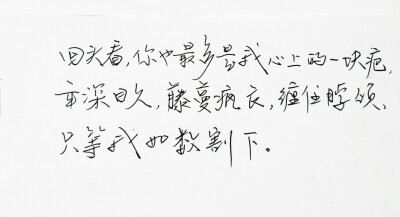 回头看,你也最多是我心上的一块疤,
年深日久,藤蔓疯长,缠住脖颈,
只等我如数割下。